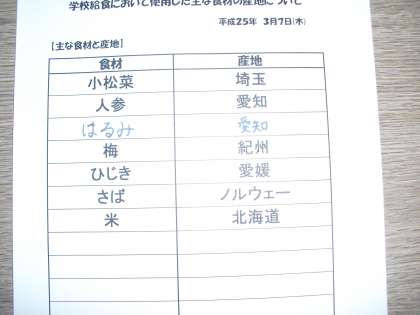 学校給食において使用した主な食材の産地について
平成25年 3月7日(木)
[主な食材と産地]
食材 産地
小松菜 埼玉
人参 愛知
はるみ 愛知
梅 紀州
ひじき 愛媛
さば ノルウェー
米 北海道